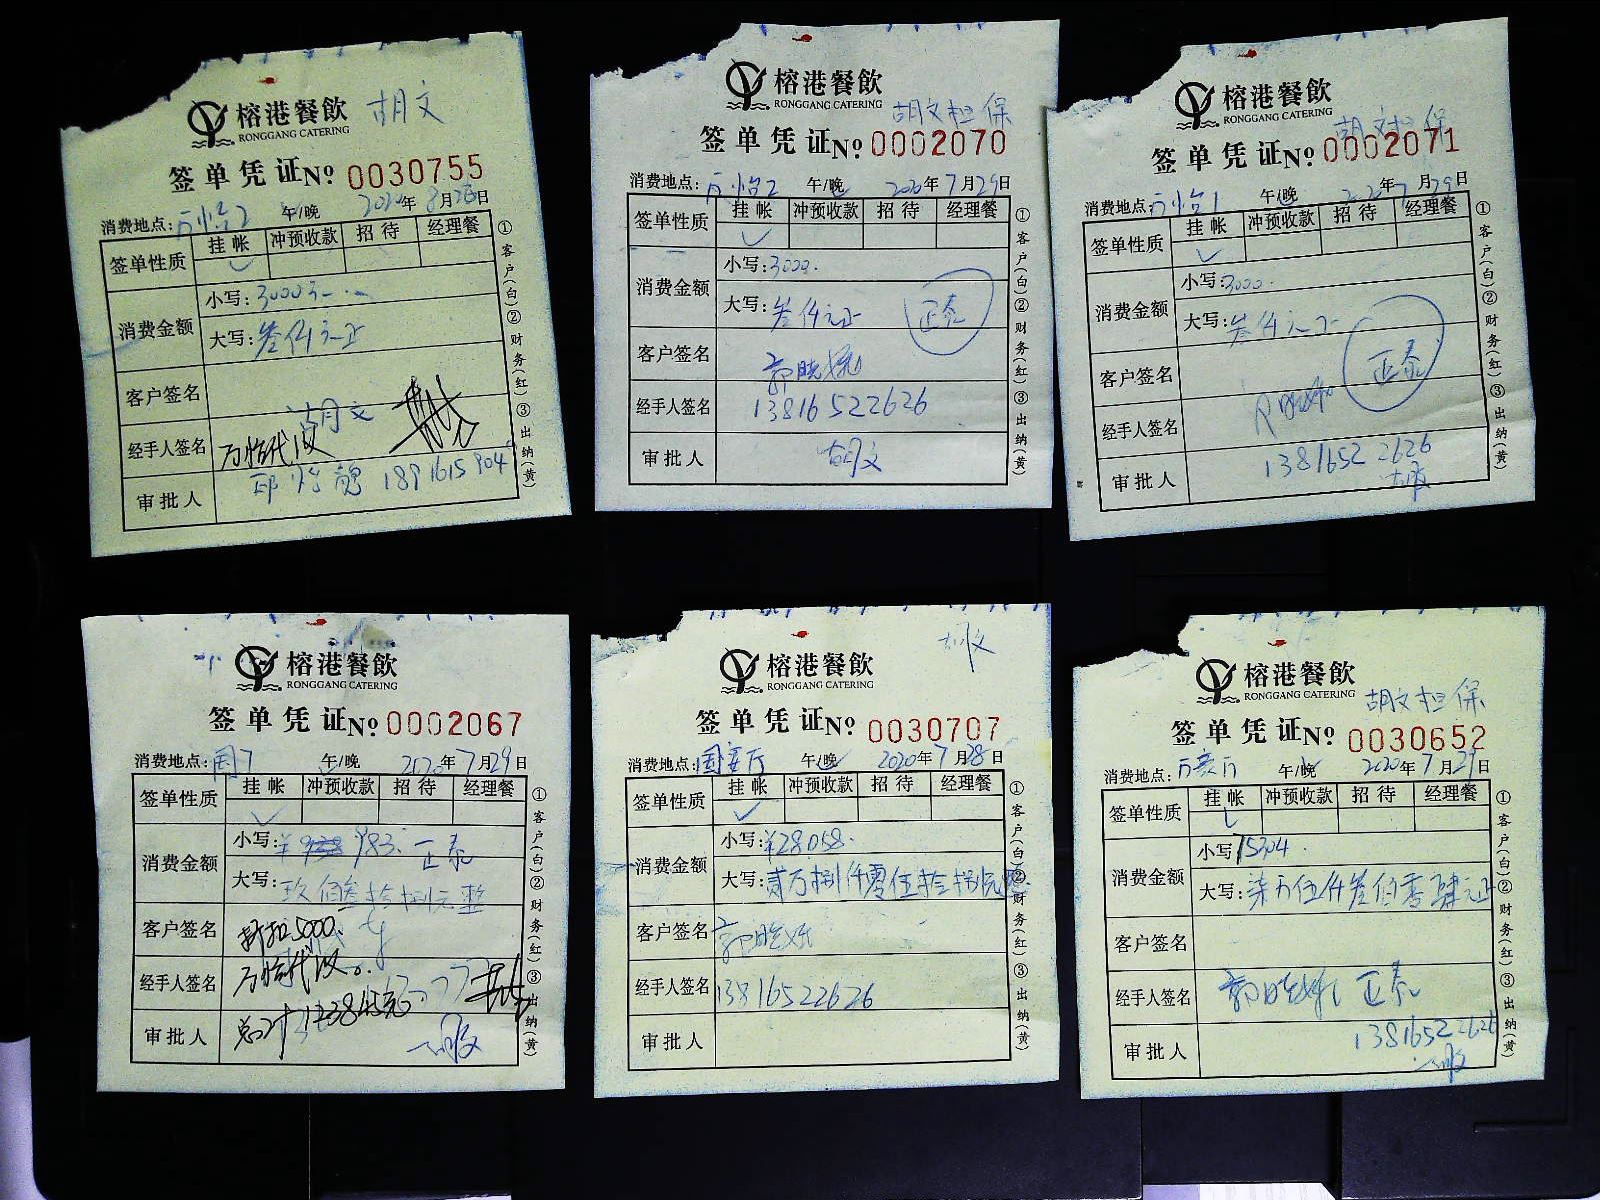 榕港餐飲 胡文
RONGGANG CATERING
签单凭证No 0030755
消费地点: 万怡2 午/晚 2020年8月28日
签单性质 挂帐 冲预收款 招待 经理餐
消费金额 小写: 3000元
大写: 叁仟元正
客户签名 胡文
经手人签名
审批人 1891615904
①客户(白)②财务(红)③出纳(黄)
榕港餐飲
RONGGANG CATERING 胡文担保
签单凭证No 0002070
消费地点: 万怡2 午/晚 2020年7月29日
签单性质 挂帐 冲预收款 招待 经理餐
消费金额 小写: 3000.
大写: 叁仟元正 正泰
客户签名
经手人签名 13816522626
审批人 胡文
①客户(白)②财务(红)③出纳(黄)
榕港餐飲
RONGGANG CATERING 胡文担保
签单凭证No 0002071
消费地点: 万怡1 午/晚 2020年7月29日
签单性质 挂帐 冲预收款 招待 经理餐
消费金额 小写: 3000.
大写: 叁仟元正
客户签名 正泰
经手人签名
审批人 13816522626
①客户(白)②财务(红)③出纳(黄)
榕港餐飲
RONGGANG CATERING
签单凭证No 0002067
消费地点: 午/晚 2020年7月29日
签单性质 挂帐 冲预收款 招待 经理餐
消费金额 小写: ¥ 983. 正泰
大写: 玖佰叁拾捌元整
客户签名 折扣5000.
经手人签名
审批人 总计
①客户(白)②财务(红)③出纳(黄)
榕港餐飲 胡文
RONGGANG CATERING
签单凭证No 0030707
消费地点: 国宴厅 午/晚 2020年7月28日
签单性质 挂帐 冲预收款 招待 经理餐
消费金额 小写: ¥28058.
大写: 贰万捌仟零伍拾捌元整
客户签名
经手人签名 13816522626
审批人
①客户(白)②财务(红)③出纳(黄)
榕港餐飲
RONGGANG CATERING 胡文担保
签单凭证No 0030652
消费地点: 午/晚 2020年7月29日
签单性质 挂帐 冲预收款 招待 经理餐
消费金额 小写: 75304.
大写: 柒万伍仟叁佰零肆元正
客户签名
经手人签名 正泰
审批人 13816522626
①客户(白)②财务(红)③出纳(黄)